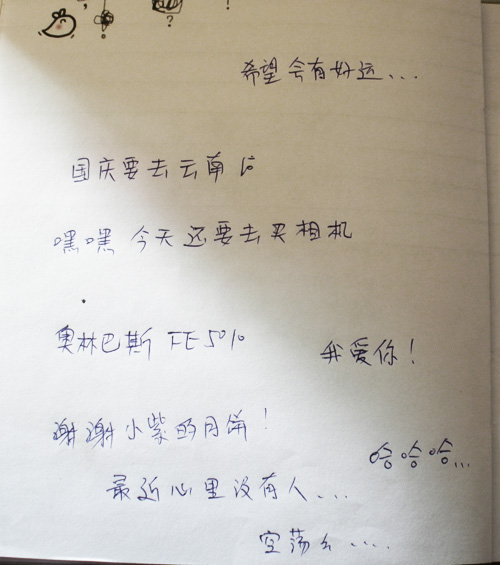 ? ? !
希望会有好运...
国庆要去云南
嘿嘿 今天还要去买相机
奥林巴斯 FE5010
我爱你!
谢谢小紫的月饼!
哈哈哈...
最近心里没有人...
空荡么....